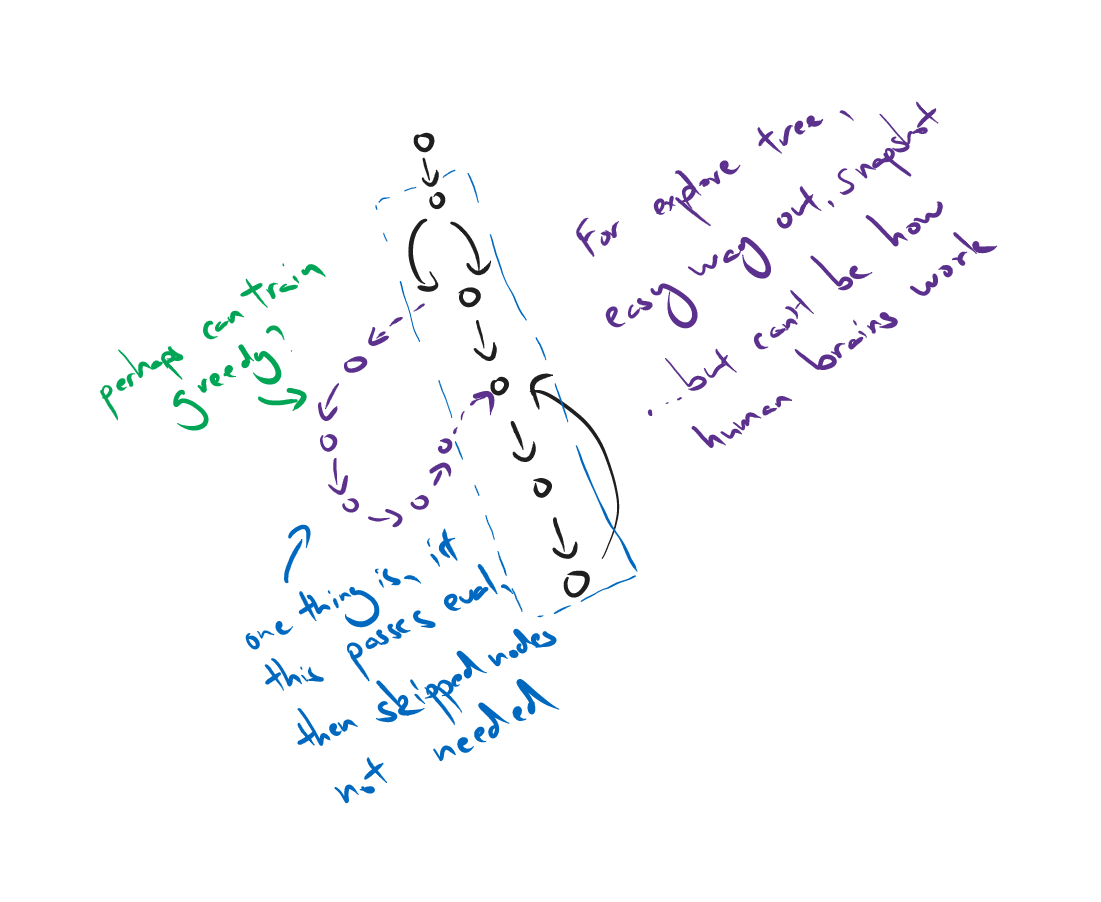 For explore tree,
easy way out, snapshot
...but can't be how
human brains work
perhaps can train
greedy,
one thing is, if
this passes eval,
then skipped nodes
not needed